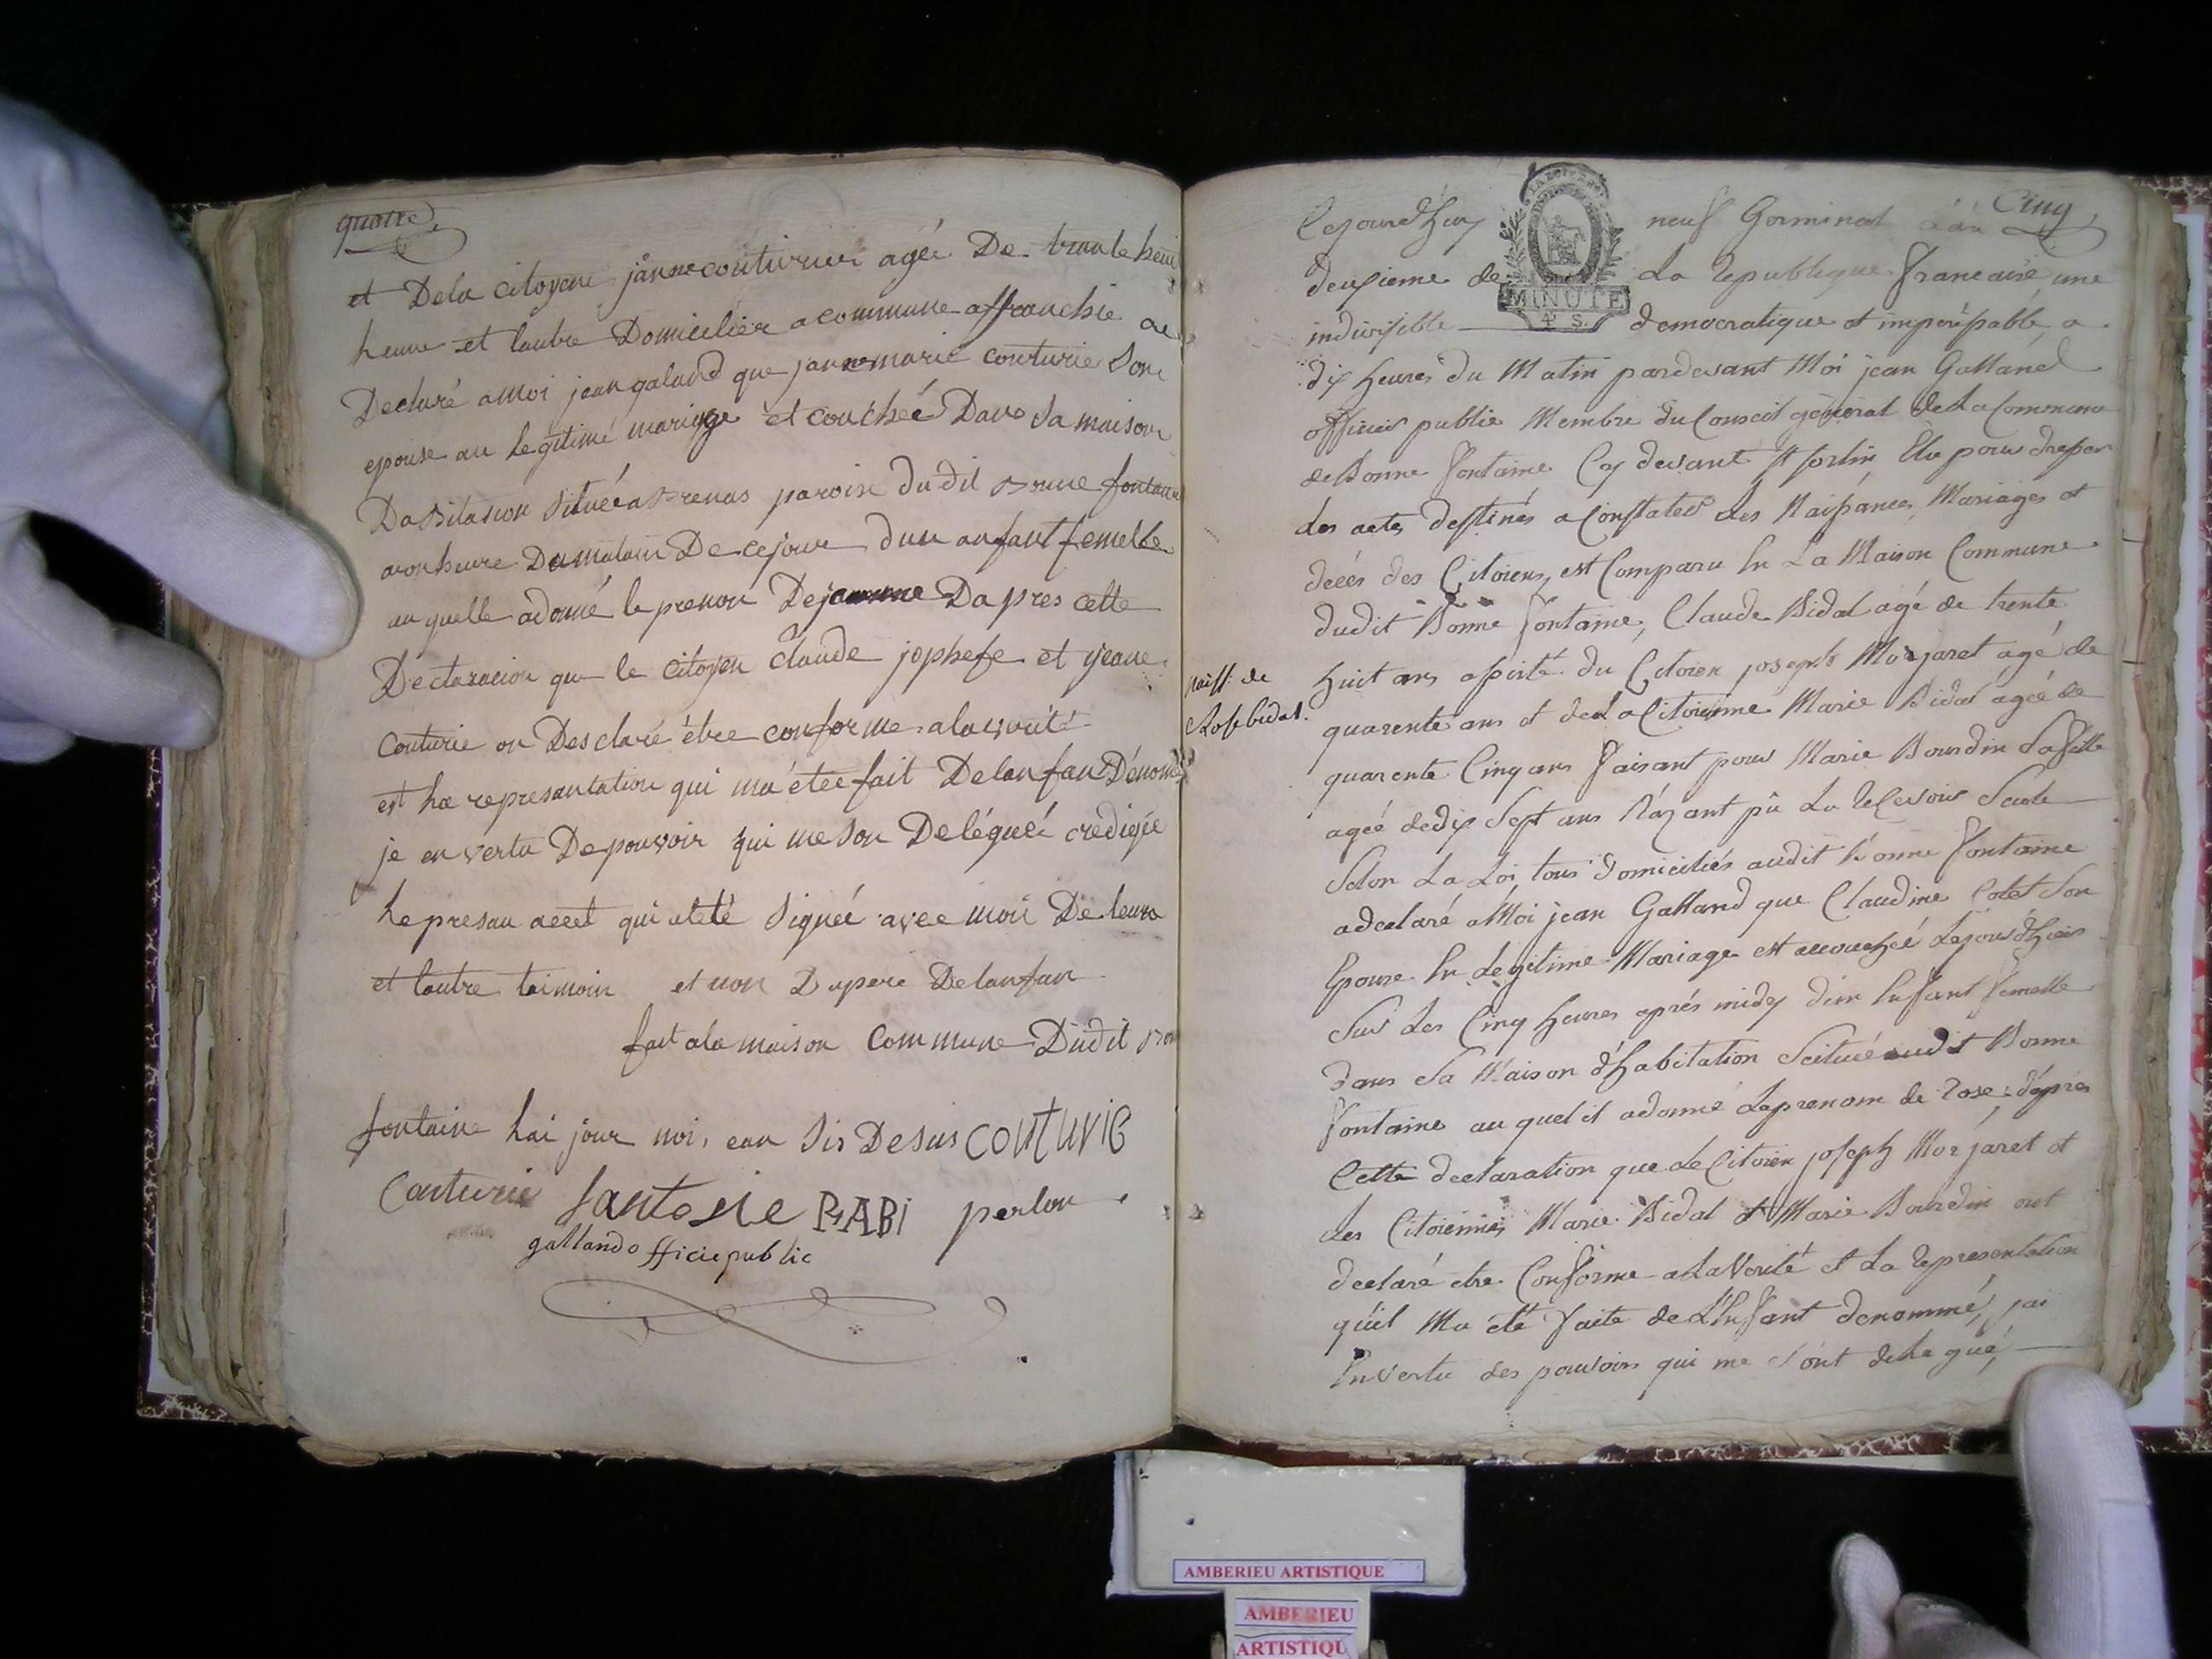 quatre
et Dela citoyene jânne couturier agée De trante heui
heune et lautre Domicilier acommune affranchie ae
Decluré amoi jean galand que janne marie couturie Son
epouse an legitime mariage et couchée Dans sa maison
Dabitasion situéea Brenas paroise dudit Bonne fontaine
Dumatain De cejour dun anfant femelle
auquelle adonné le prenon De jeanne Dapres cette
Declaracion que le citoyen claude jophefe et yeane
couturie on Desclaré être conforme alaverité
est la represantation qui ma étée fait Delanfan Dénomé
je en vertu Depouvoir qui me son Deléguéé eredigée
le presan acet qui aleté signéé avec moi De leun
et lautre taimoin et non Dupere Delanfan
fait ala maison commune Dudit Bon
fontaine lai jour moi, ean sis Desus COUTURIE
Couturie fantosie RABI perlon
galland officie public
Cing
Cejourd'huy neuf Germinal L'an
deuxieme de La republique francaise, une
indivisible democratique et imperissable, a
dix heures du Matin pardevant Moi jean Galland
officier public Membre du Conseil général de La Commune
de Bonne fontaine Cy devant St sorlin Elu pour dresser
des actes destinés a Constater Les Naissances, Mariages et
décés des Citoiens, est Comparu En La Maison Commune
dudit Bonne fontaine, Claude Bidal agé de trente
huit ans assisté du Citoien joseph Morjaret agé de
naiss. de
Rose bidal.
quarente ans et de La Citoienne Marie Bidal agéé de
quarente Cinq ans faisant pour Marie Bourdin Sa fille
agéé de dix Sept ans N'ayant pû La recevoir Seule
Selon La Loi, tous domiciliés audit Bonne fontaine
a declaré a Moi jean Galland que Claudine Colet Son
Epouse En Legitime Mariage est accouchéé Lejourd'hier
Sur Les Cinq heures aprés midy d'un Enfant femelle
dans Sa Maison d'habitation Scituéé audit Bonne
fontaine au quel il adonné Le prenom de Rose: d'apres
Cette declaration que Le Citoien joseph Morjaret et
Les Citoiennes Marie Bidal et Marie Bourdin ont
declaré etre Conforme a La Verité et La representation
qu'il Ma été faite de L'Enfant denommé, jai
En vertu des pouvoirs qui me sont delegué,
LA LOI LE ROI
MINUTE
S.
AMBERIEU ARTISTIQUE
AMBERIEU
ARTISTIQU